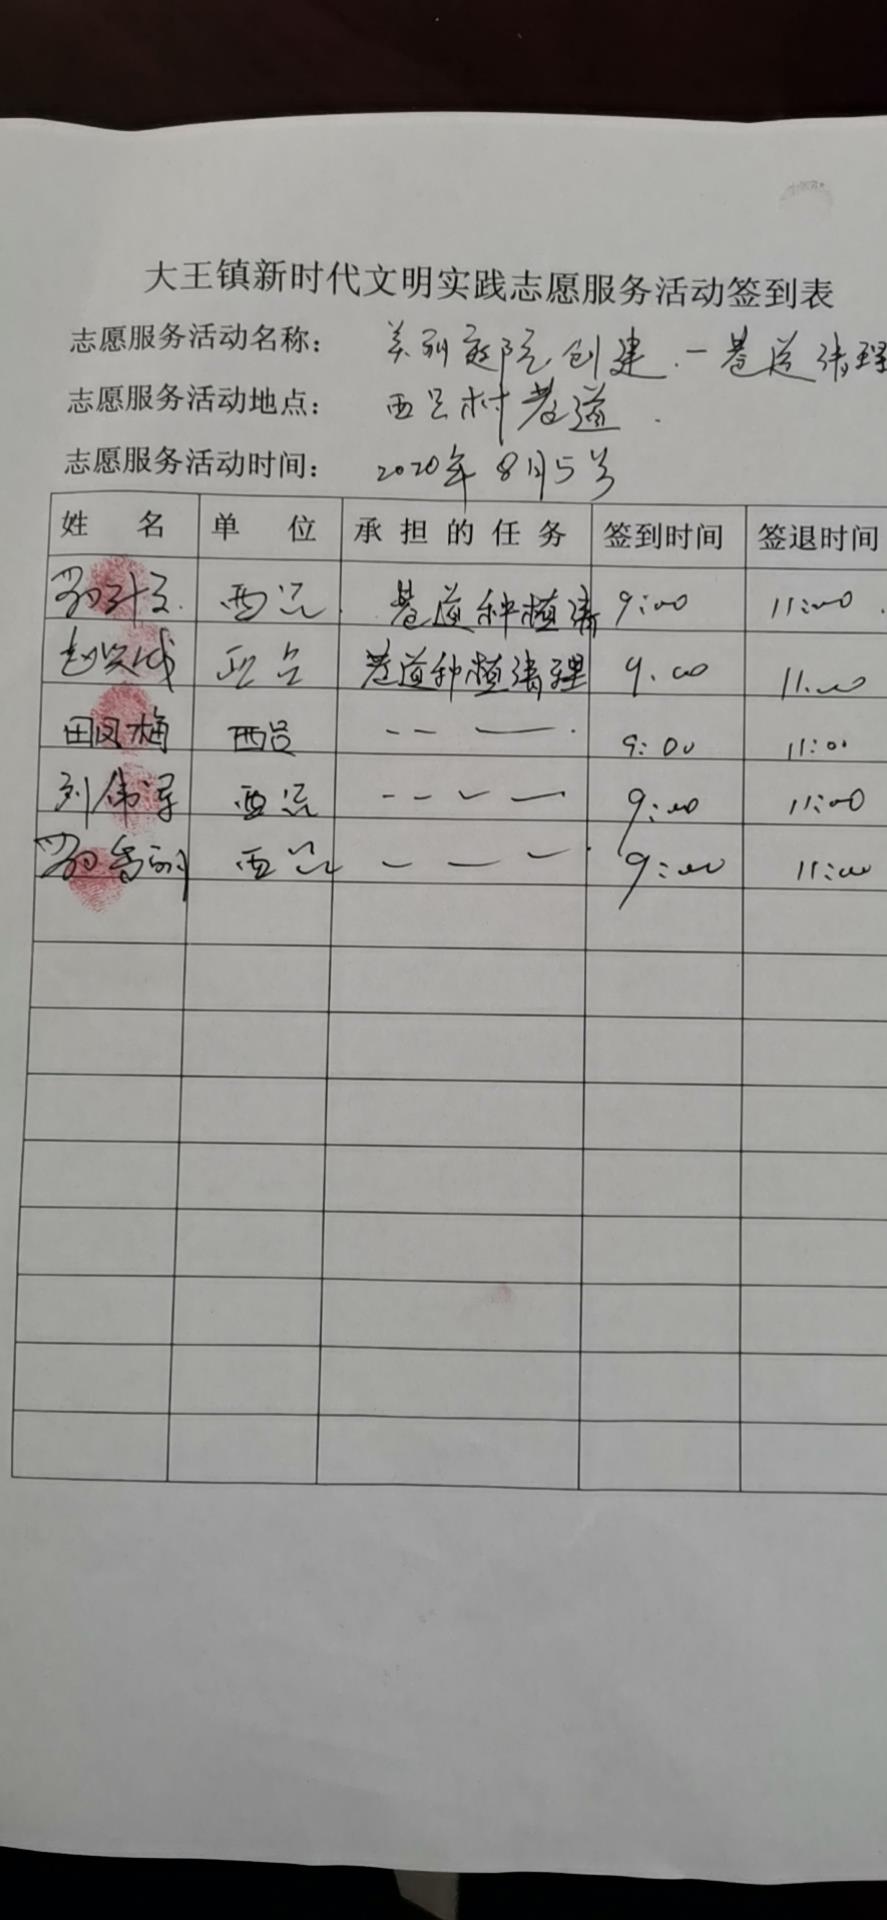 大王镇新时代文明实践志愿服务活动签到表
志愿服务活动名称： 美丽庭院创建.一巷道清理
志愿服务活动地点： 西吕村巷道.
志愿服务活动时间： 2020年8月5号
姓 名 单 位 承担的任务 签到时间 签退时间
西吕 巷道种植清 9:00 11:00
西吕 巷道种植清理 9.00 11.00
田凤梅 西吕 9:00 11:00
刘伟军 西吕 9:00 11:00
西吕 9:00 11:00